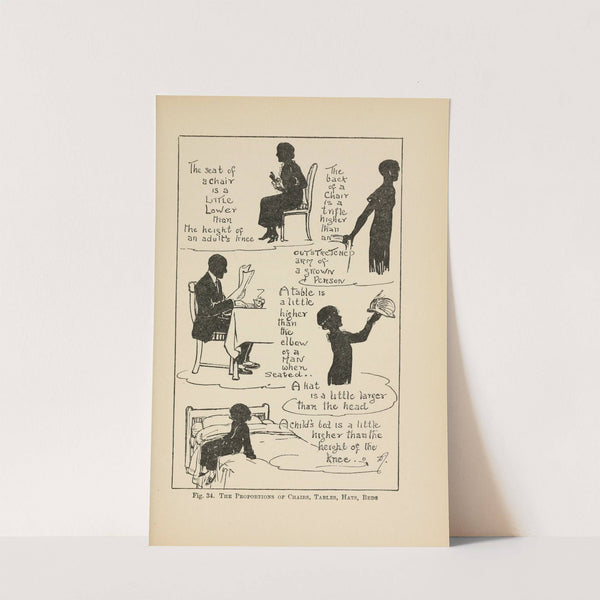 The seat of
a chair
is a
Little
Lower
than
the height of
an adult's knee
The
back
of a
chair
is a
trifle
higher
than
an
outstretched
arm of
a grown
person
A table is
a little
higher
than
the
elbow
of a
man
when
seated..
A hat
is a little larger
than the head
A child's bed is a little
higher than the
height of the
knee...
Fig. 34. The Proportions of Chairs, Tables, Hats, Beds